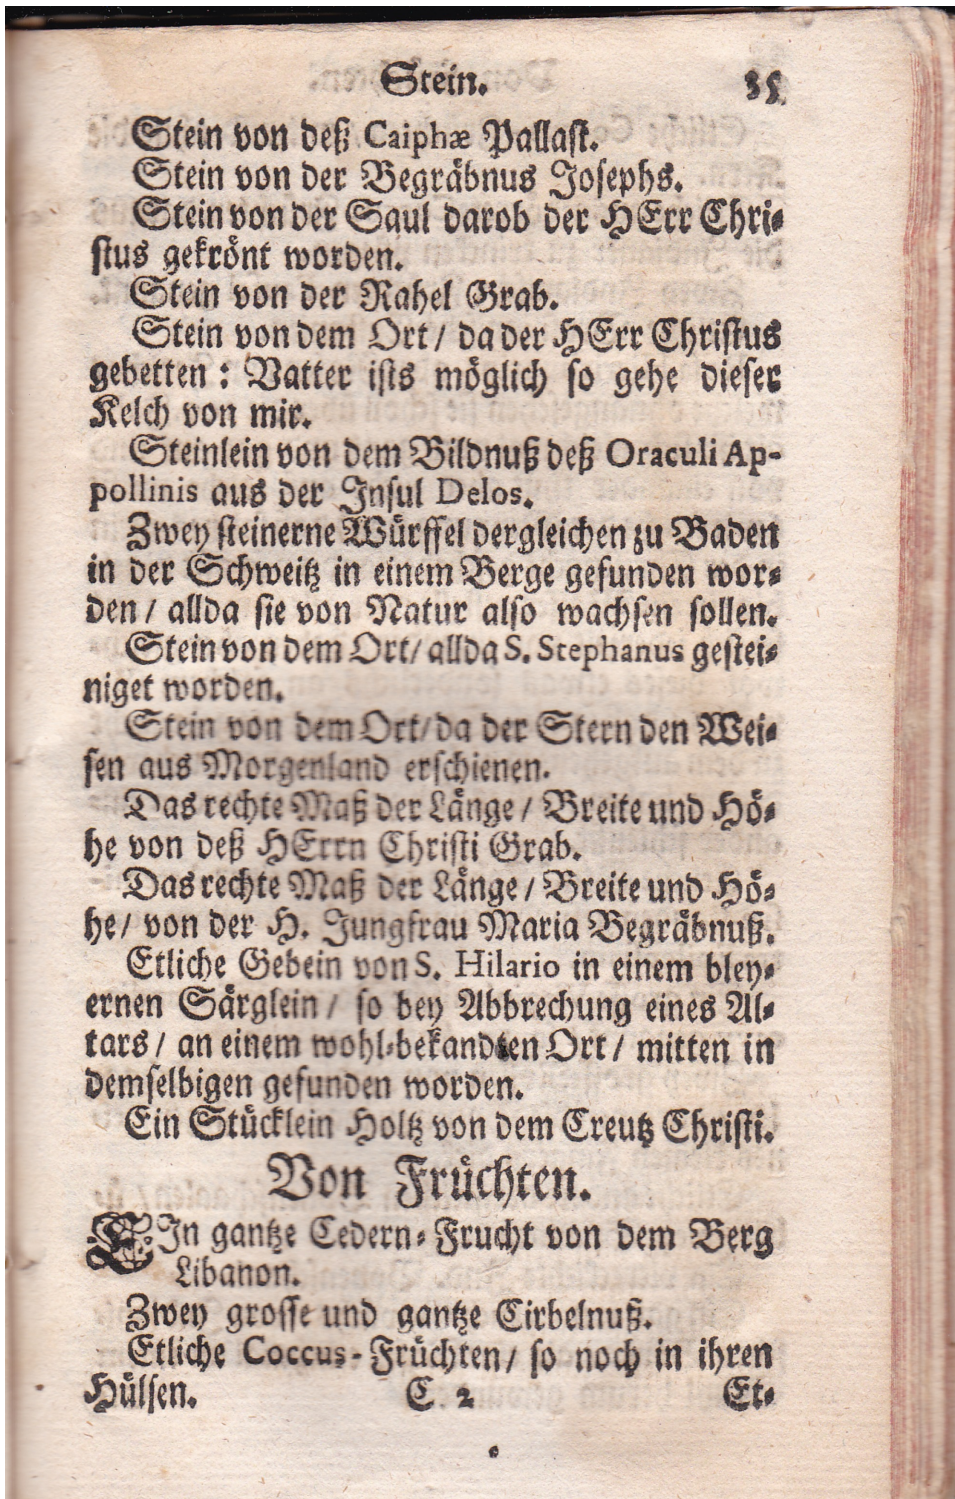 Stein. 35
Stein von deß Caiphæ Pallast.
Stein von der Begräbnus Josephs.
Stein von der Saul darob der HErr Chri-
stus gekrönt worden.
Stein von der Rahel Grab.
Stein von dem Ort / da der HErr Christus
gebetten : Vatter ists möglich so gehe dieser
Kelch von mir.
Steinlein von dem Bildnuß deß Oraculi Ap-
pollinis aus der Insul Delos.
Zwey steinerne Würffel dergleichen zu Baden
in der Schweitz in einem Berge gefunden wor-
den / allda sie von Natur also wachsen sollen.
Stein von dem Ort / allda S. Stephanus gestei-
niget worden.
Stein von dem Ort / da der Stern den Wei-
sen aus Morgenland erschienen.
Das rechte Maß der Länge / Breite und Hö-
he von deß HErrn Christi Grab.
Das rechte Maß der Länge / Breite und Hö-
he / von der H. Jungfrau Maria Begräbnuß.
Etliche Gebein von S. Hilario in einem bley-
ernen Särglein / so bey Abbrechung eines Al-
tars / an einem wohl-bekandten Ort / mitten in
demselbigen gefunden worden.
Ein Stücklein Holtz von dem Creutz Christi.
Von Früchten.
EIn gantze Cedern-Frucht von dem Berg
Libanon.
Zwey grosse und gantze Cirbelnuß.
Etliche Coccus-Früchten / so noch in ihren
Hülsen. C 2 Et-